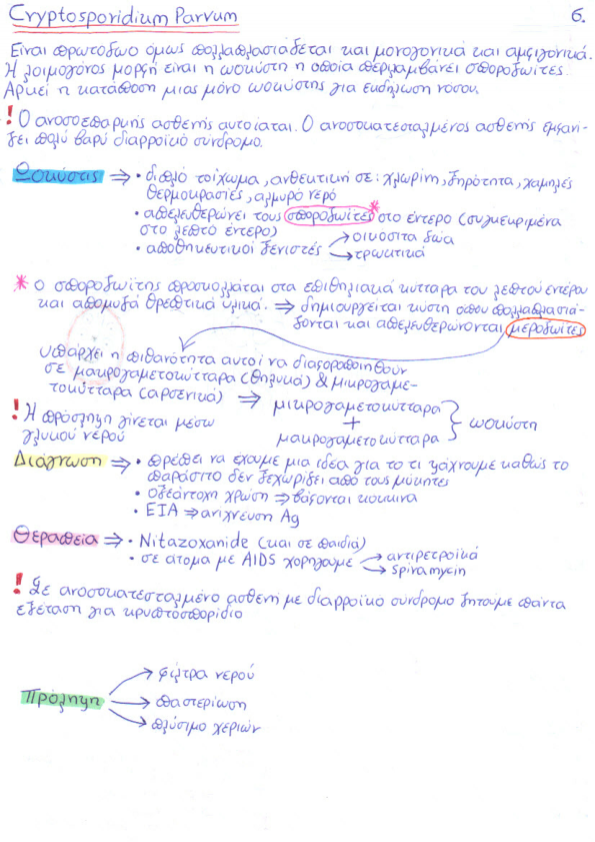 Cryptosporidium Parvum
6.
Είναι πρωτόζωο όμως πολλαπλασιάζεται και μονογονικά και αμφιγονικά.
Η λοιμογόνος μορφή είναι η ωοκύστη η οποία περιλαμβάνει σποροζωίτες.
Αρκεί η κατάποση μιας μόνο ωοκύστης για εκδήλωση νόσου.
! Ο ανοσοεπαρκής ασθενής αυτοίαται. Ο ανοσοκατεσταλμένος ασθενής εμφανί-
ζει πολύ βαρύ διαρροϊκό σύνδρομο.
Ωοκύστις ⇒ • διπλό τοίχωμα, ανθεκτική σε: χλωρίνη, ξηρότητα, χαμηλές
θερμοκρασίες, αλμυρό νερό
• απελευθερώνει τους σποροζωίτες* στο έντερο (συγκεκριμένα
στο λεπτό έντερο)
• αποθηκευτικοί ξενιστές → οικόσιτα ζώα
→ τρωκτικά
* ο σποροζωίτης προσκολλάται στα επιθηλιακά κύτταρα του λεπτού εντέρου
και απομυζά θρεπτικά υλικά. ⇒ δημιουργείται κύστη όπου πολλαπλασιά-
ζονται και απελευθερώνονται μεροζωίτες
Υπάρχει η πιθανότητα αυτοί να διαφοροποιηθούν
σε μακρογαμετοκύτταρα (θηλυκά) & μικρογαμε-
τοκύτταρα (αρσενικά) ⇒ μικρογαμετοκύτταρα
+
μακρογαμετοκύτταρα } ωοκύστη
! Η πρόσληψη γίνεται μέσω
γλυκού νερού
Διάγνωση ⇒ • πρέπει να έχουμε μια ιδέα για το τι ψάχνουμε καθώς το
παράσιτο δεν ξεχωρίζει από τους μύκητες
• Οξεάντοχη χρώση ⇒ βάφονται κόκκινα
• EIA ⇒ ανίχνευση Ag
Θεραπεία ⇒ • Nitazoxanide (και σε παιδιά)
• σε άτομα με AIDS χορηγούμε → αντιρετροϊκά
→ spiramycin
! Σε ανοσοκατεσταλμένο ασθενή με διαρροϊκό σύνδρομο ζητούμε πάντα
εξέταση για κρυπτοσπορίδιο
Πρόληψη → φίλτρα νερού
→ παστερίωση
→ πλύσιμο χεριών